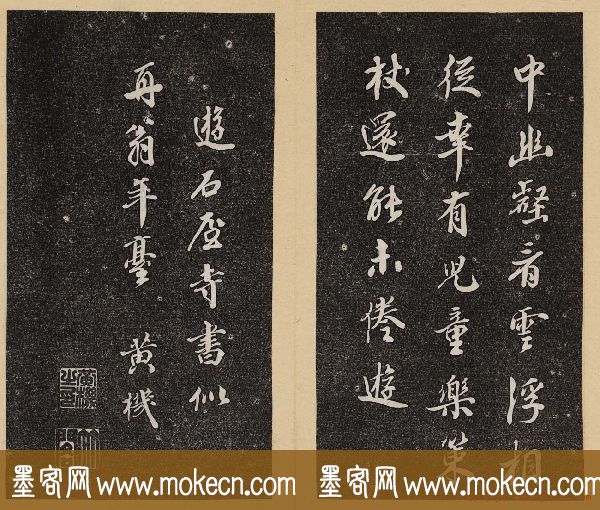 中幽壑看雲浮相
從幸有兒童樂策
杖還能未倦遊
遊石屋寺書似
再翁年臺 黄機
黃機之印
墨客网 www.mokecn.com 墨客网 www.mokecn.com